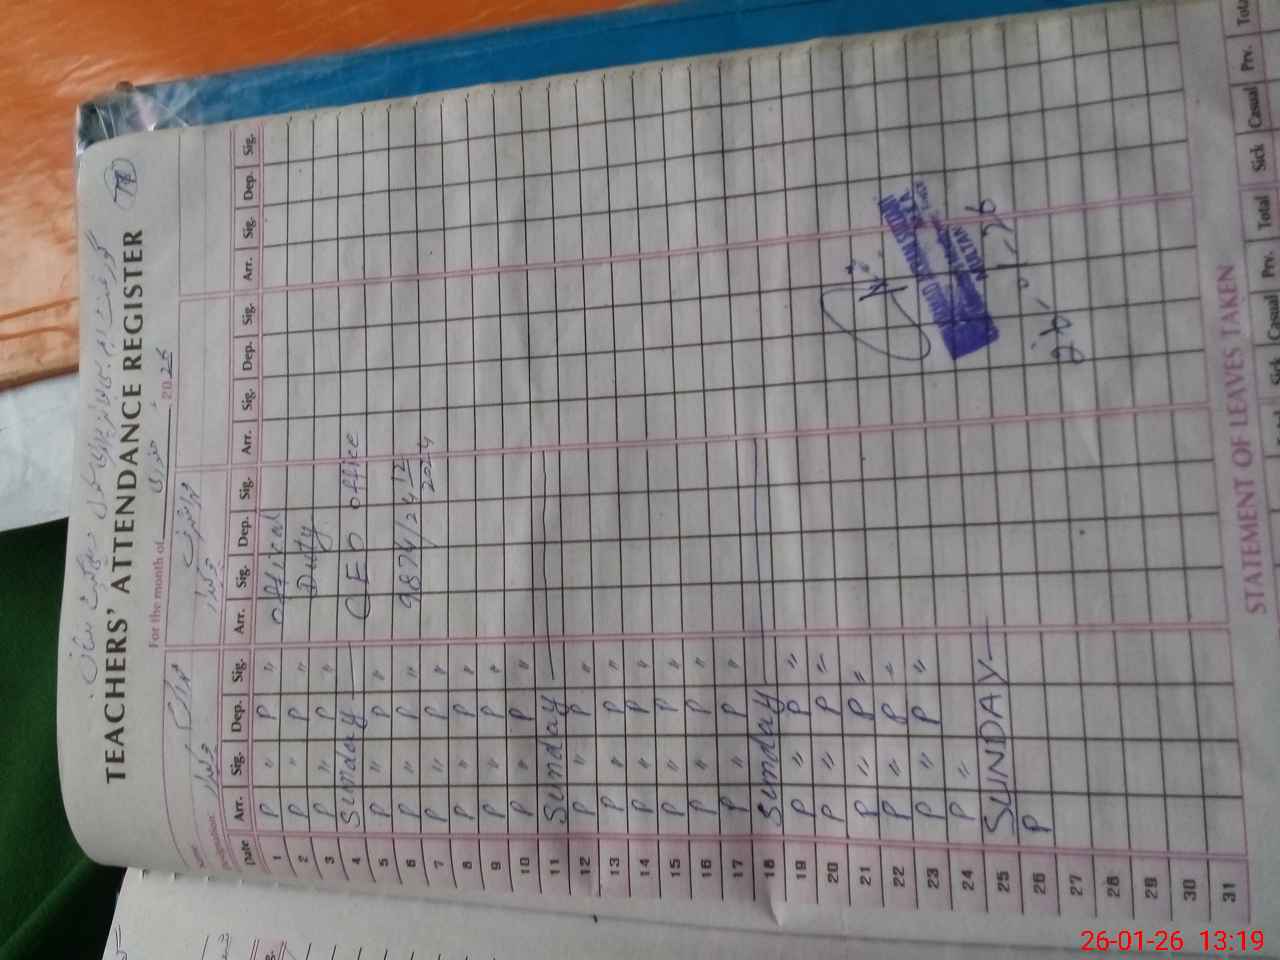 78
TEACHERS' ATTENDANCE REGISTER
For the month of جنوری 2026
Date Arr. Sig. Dep. Sig. Arr. Sig. Dep. Sig. Arr. Sig. Dep. Sig. Arr. Sig. Dep. Sig.
1 P " P " Official
2 P " P " Duty
3 P " P "
4 Sunday — CEO office
5 P " P "
6 P " P " 9874/24 12
7 P " P " 2024
8 P " P "
9 P " P "
10 P " P "
11 Sunday —
12 P " P "
13 P " P "
14 P " P "
15 P " P "
16 P " P "
17 P " P "
18 Sunday —
19 P " P "
20 P " P "
21 P " P "
22 P " P "
23 P " P "
24 P "
25 SUNDAY —
26 P
27
28
29
30
31
MULTAN
26-01-26
STATEMENT OF LEAVES TAKEN
Sick Casual Prv. Total Sick Casual Prv. Tota
26-01-26 13:19